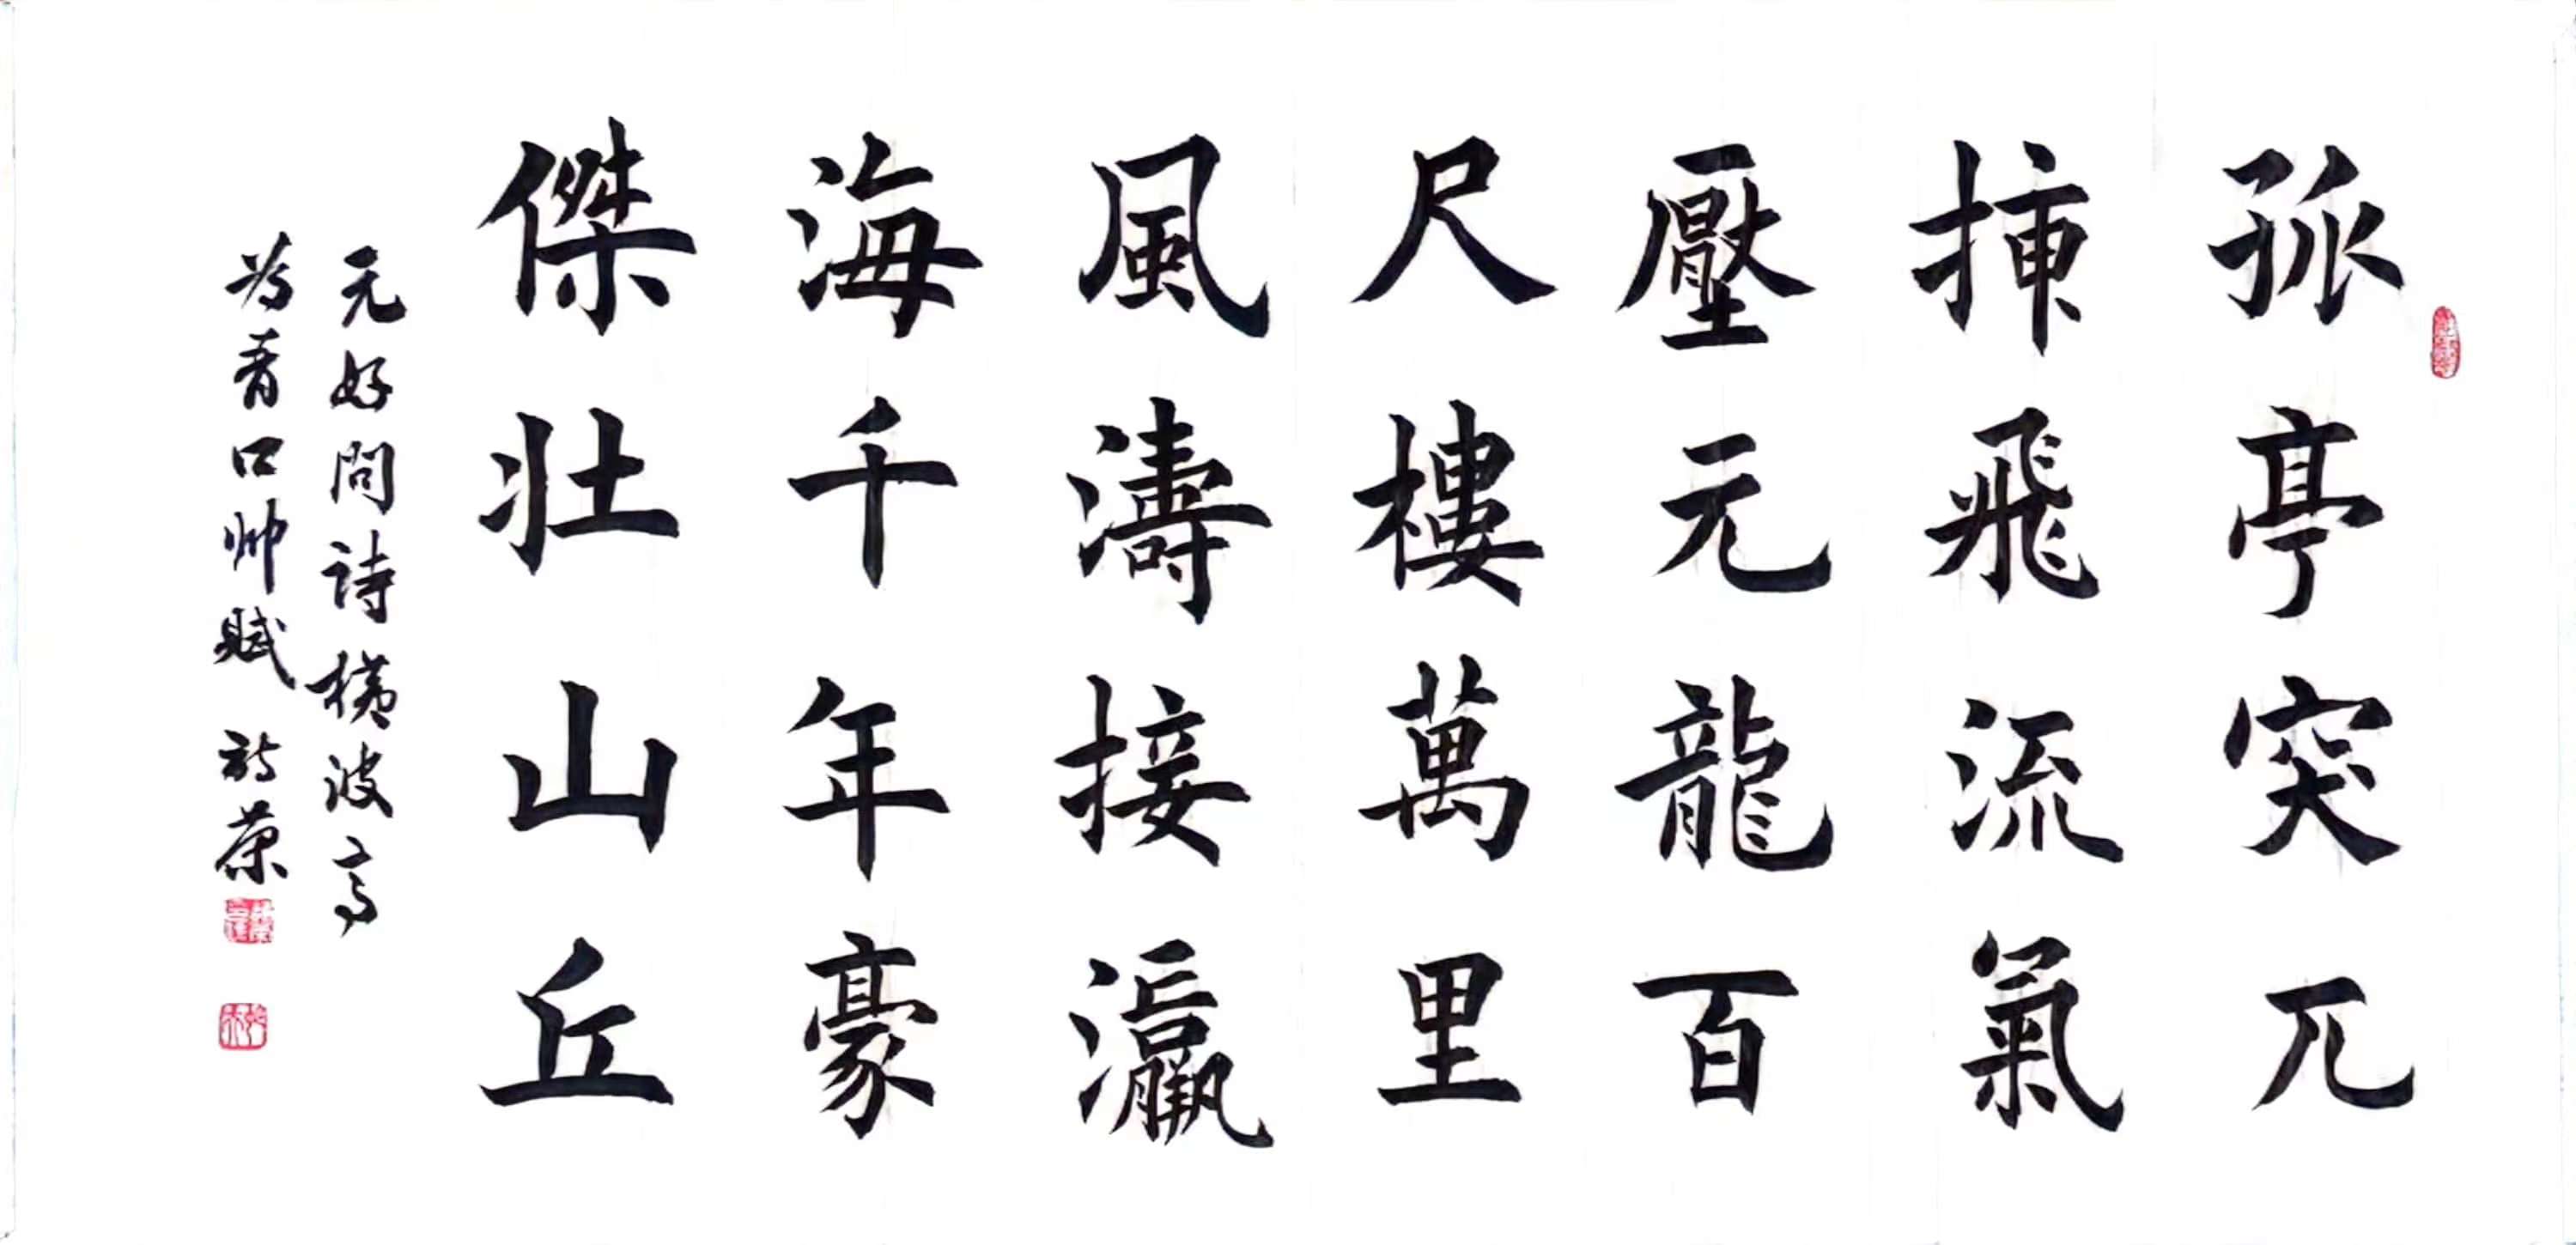 孤亭突兀
插飛流氣
壓元龍百
尺樓萬里
風濤接瀛
海千年豪
傑壯山丘
元好問詩橫波亭
為青口帥賦